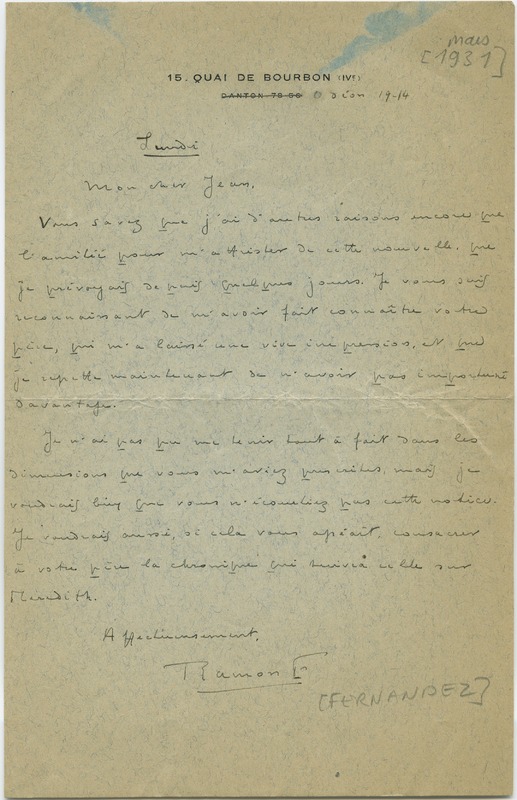 mars
[1931]
15. QUAI DE BOURBON (IVe)
DANTON 78-56 Odéon 19-14
Lundi
Mon cher Jean,
Vous savez que j'ai d'autres raisons encore que
l'amitié pour m'attrister de cette nouvelle, que
je prévoyais depuis quelques jours. Je vous suis
reconnaissant de m'avoir fait connaître votre
père, qui m'a laissé une vive impression, et que
je regrette maintenant de n'avoir pas importuné
davantage.
Je n'ai pas pu me tenir tout à fait dans les
dimensions que vous m'aviez prescrites, mais je
voudrais bien que vous n'écourtiez pas cette notice.
Je voudrais aussi, si cela vous agréait, consacrer
à votre père la chronique qui suivra celle sur
Meredith.
Affectueusement,
Ramon F
[FERNANDEZ]